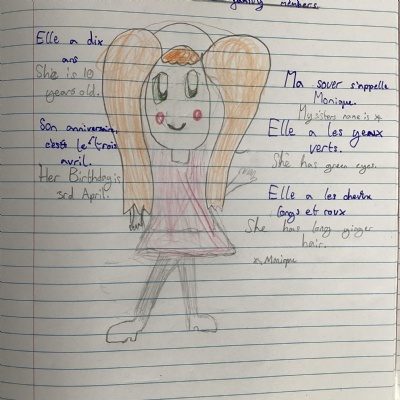 family members.
Elle a dix
ans
She is 10
years old.
Son anniversaire,
c'est le trois
avril.
Her Birthday is
3rd April.
Ma souer s'appelle
Monique.
My sisters name is x
Elle a les yeux
verts.
She has green eyes.
Elle a les
longs et roux
She has long ginger
hair.
x, Monique